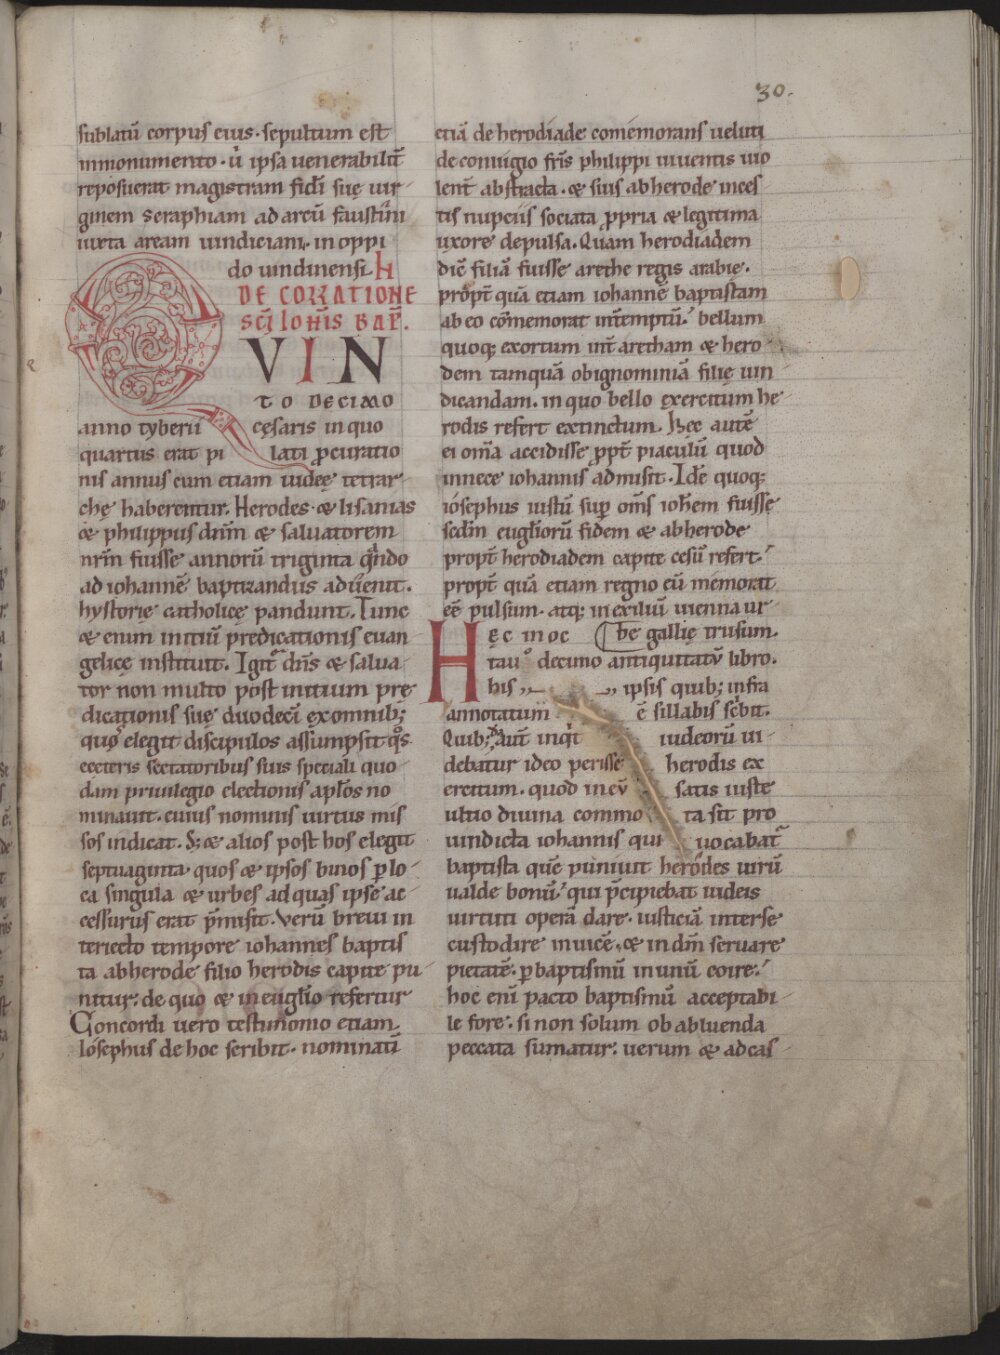 30.
sublatū corpus eius. sepultum est
inmonumento. ū ipsa uenerabilit̄
reposuerat magistram fidī suę uir-
ginem seraphiam ad arcū faustini
iuxta aream uindiciani. in oppi
do uindinensi.
DE COLLATIONE
SCĪ IOHIS BAP̄.
QVIN
TO DECIMO
anno tyberii cęsaris in quo
quartus erat pilati p̱curatio
nis annus cum etiam iudeę tetrar-
chę haberentur. Herodes. & lisanias
& philippus dn̄m & saluatorem
nr̄m fuisse annorū triginta qn̄do
ad iohannē baptizandus aduenit.
hystorię catholicę pandunt. Tunc
& enim initiū predicationis euan-
gelicę instituit. Igit̄ dn̄s & salua-
tor non multo post initium prę
dicationis suę duodecī exomnib;
quos elegit discipulos assumpsit qͦs
ceteris sectatoribus suis speciali quo-
dam priuilegio electionis apl̄os no
minauit. cuius nominis uirtus mis
sos indicat. S; & alios post hos elegit
septuaginta quos & ipsos binos p̱ lo-
ca singula & urbes ad quas ipse ac-
cessurus erat p̄misit. Verū breui in
teriecto tempore iohannes baptis
ta ab herode filio herodis capite pu-
nitur. de quo & in eugl̄io refertur
Concordi uero testimonio etiam
Iosephus de hoc scribit. nominatī
etiā de herodiade comēmorans ueluti
de coniugio fr̄is philippi uiuentis uio
lent̄ abstracta. & suis ab herode inces-
tis nuptiis sociata p̱pria & legitima
uxore depulsa. Quam herodiadem
dic̄ filiā fuisse arethe regis arabie.
propt̄ quā etiam iohannē baptistam
ab eo com̄emorat int̄emptū. bellum
quoq; exortum int̄ aretham & hero-
dem tamquā ob ignominiā filię uin
dicandam. in quo bello exercitum he-
rodis refert extinctum. Hec autē
ei om̄a accidisse p̱pt̄ piaculū quod
innece iohannis admisit. Idē quoq;
iosephus iustū sup̱ om̄s ioh̄em fuisse
sedm̄ eugl̄iorū fidem & ab herode
propt̄ herodiadem capite cesū refert.
propt̄ quā etiam regno eū memorat
eē pulsum. atq; in exiliū uienna ur-
be gallię trusum.
Hęc in oc
tauͦ decimo antiquitatū libro.
his ipsis quib; infra
annotatum ē sillabis sc̄bit.
Quib; aut̄ inqͥt iudeorū ui
debatur ideo perisse herodis ex
ercitum. quod in eū satis iuste
ultio diuina commota sit pro
uindicta iohannis qui uocabat̄
baptista quē puniuit herodes uirū
ualde bonū. qui p̄cipiebat iudeis
uirtuti operā dare. iusticiā interse
custodire inuicē. & in dm̄ seruare
pietatē. p̱ baptismū in unū coire.
hoc enī pacto baptismū acceptabi-
le fore. si non solum ob abluenda
peccata sumatur. uerum & ad cas-